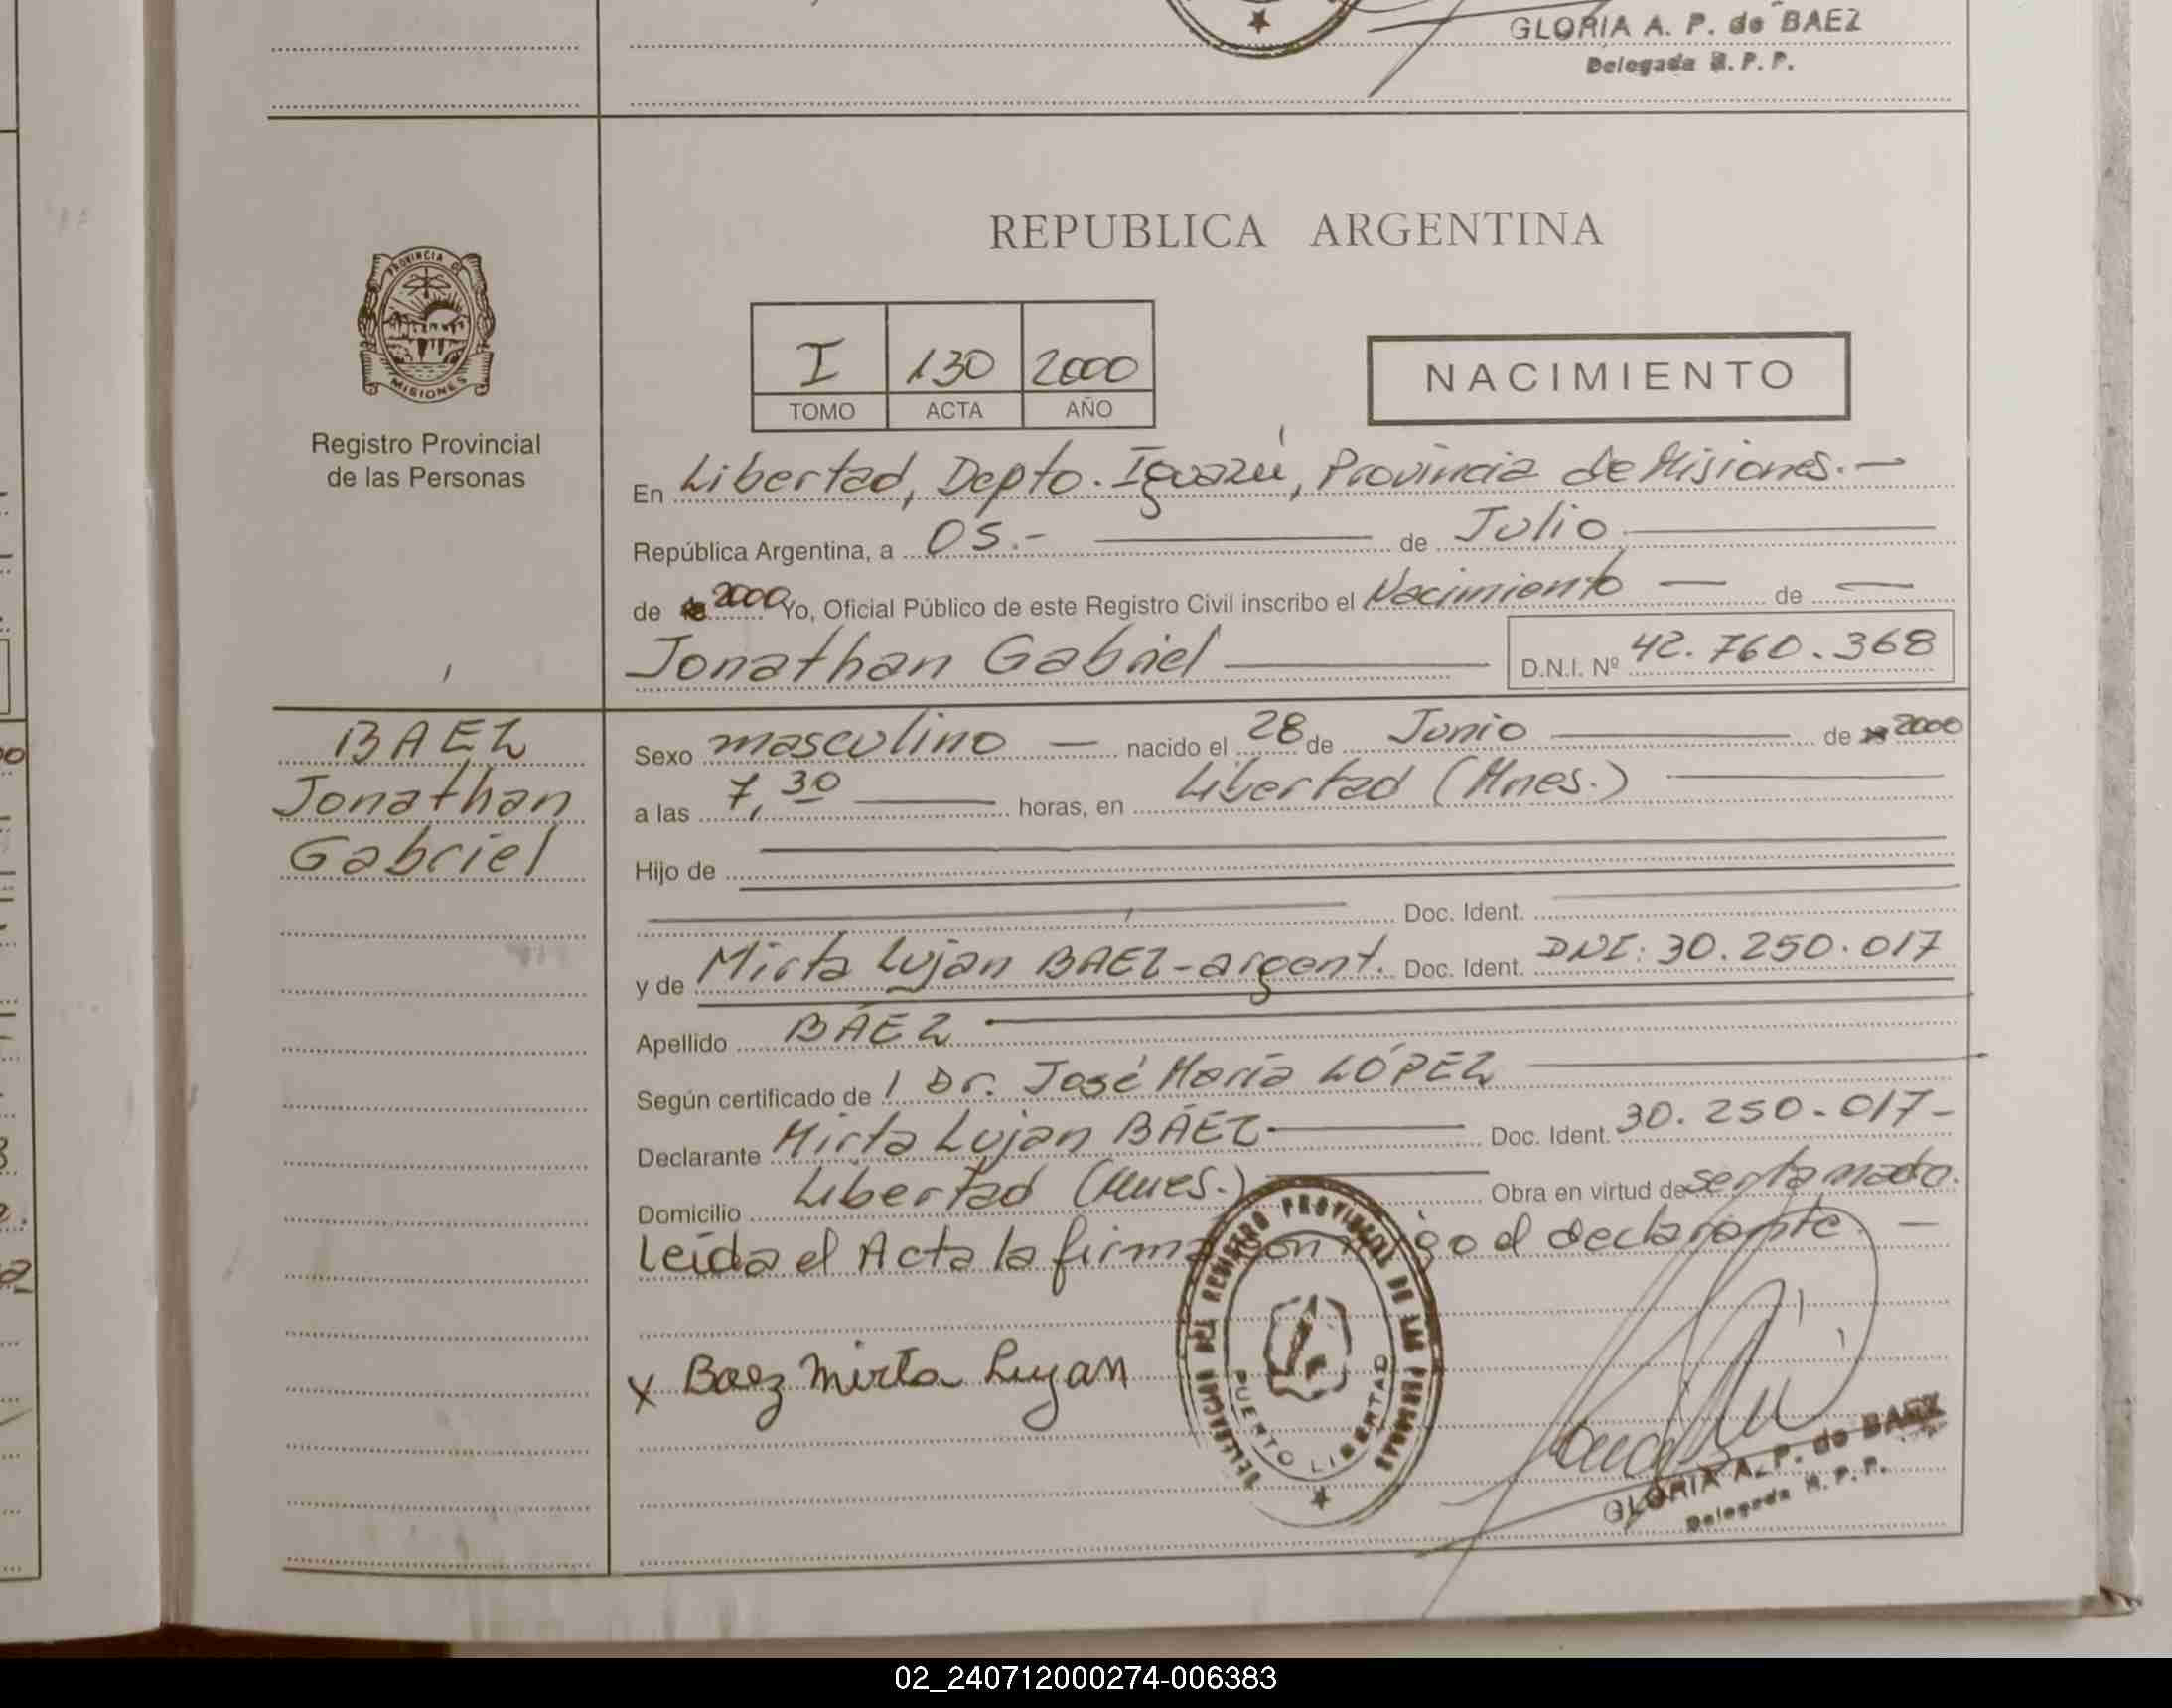 GLORIA A. P. de BAEZ
Delegada R. P. P.
REPUBLICA ARGENTINA
PROVINCIA DE
MISIONES
Registro Provincial
de las Personas
I 130 2000
TOMO ACTA AÑO
NACIMIENTO
En Libertad, Depto. Iguazú, Provincia de Misiones.-
República Argentina, a 05.- de Julio
de 2000 Yo, Oficial Público de este Registro Civil inscribo el Nacimiento — de —
Jonathan Gabriel D.N.I. Nº 42.760.368
BAEZ
Jonathan
Gabriel
Sexo masculino — nacido el 28 de Junio de 2000
a las 7,30 horas, en Libertad (Mnes.)
Hijo de
Doc. Ident.
y de Mirta Lujan BAEZ-argent. Doc. Ident. DNI: 30.250.017
Apellido BÁEZ
Según certificado de / Dr. José María LÓPEZ
Declarante Mirta Lujan BÁEZ Doc. Ident. 30.250.017-
Domicilio Libertad (Mnes.) Obra en virtud de
Leída el Acta la firma conmigo el declarante —
x Baez Mirta Luyan
DELEGACION DEL REGISTRO PROVINCIAL DE LAS PERSONAS
PUERTO LIBERTAD
GLORIA A. P. de BAEZ
Delegada R. P. P.
02_240712000274-006383